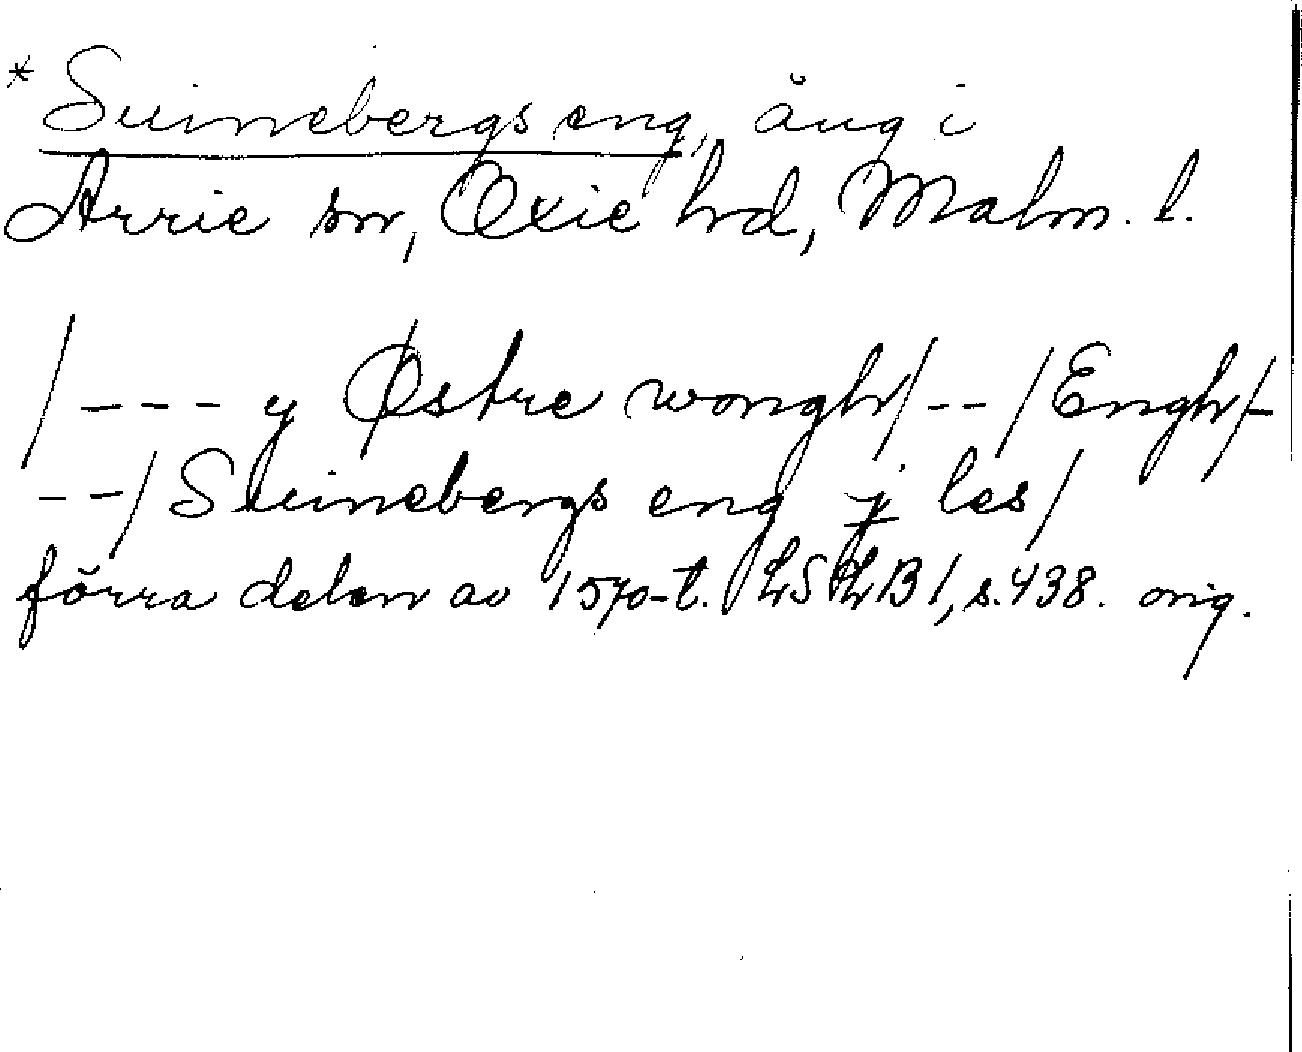 * Suinebergs eng, äng i
Arrie sn, Oxie hd, Malm. l.
/--- y Østre wongh/--/Engh/-
--/Suinebergs eng j les/
förra delen av 1570-t. LSLB I, s. 438. orig.